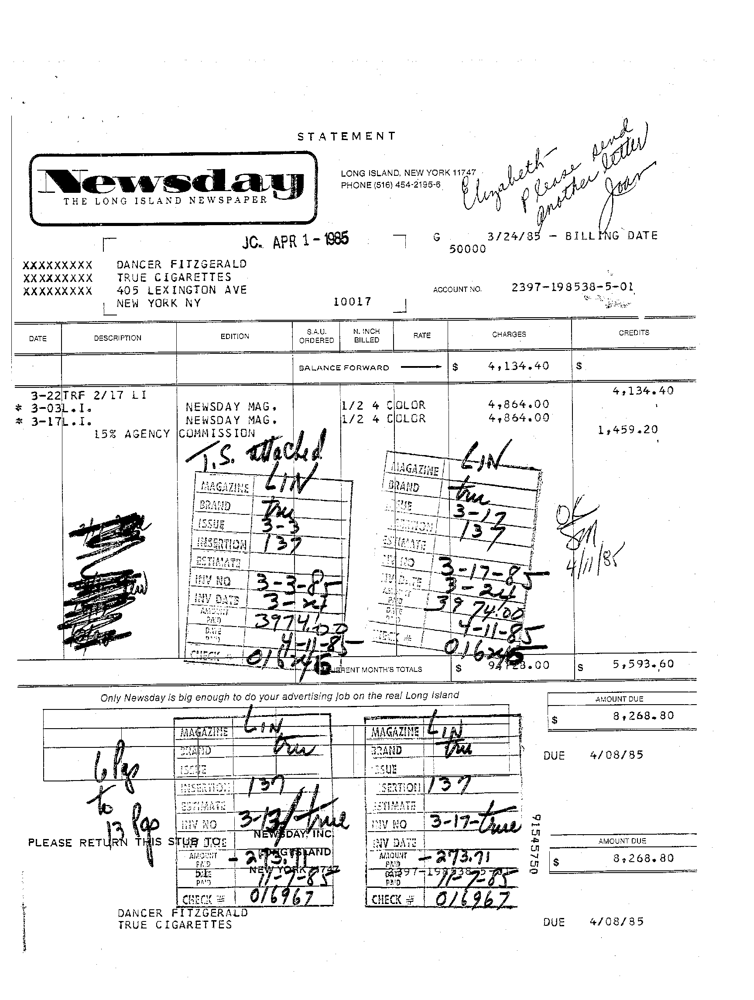 STATEMENT
Newsday
THE LONG ISLAND NEWSPAPER
LONG ISLAND, NEW YORK 11747
PHONE (516) 454-2195-6
Elizabeth-
Please send
another letter
Joan
JC. APR 1-1985
G 3/24/85 - BILLING DATE
50000
XXXXXXXXX DANCER FITZGERALD
XXXXXXXXX TRUE CIGARETTES
XXXXXXXXX 405 LEXINGTON AVE
NEW YORK NY 10017
ACCOUNT NO. 2397-198538-5-01
DATE DESCRIPTION EDITION S.A.U. ORDERED N. INCH BILLED RATE CHARGES CREDITS
BALANCE FORWARD $ 4,134.40 $
3-22 TRF 2/17 LI 4,134.40
* 3-03 L.I. NEWSDAY MAG. 1/2 4 COLOR 4,864.00
* 3-17 L.I. NEWSDAY MAG. 1/2 4 COLOR 4,864.00
15% AGENCY COMMISSION 1,459.20
T.S. attached
MAGAZINE LIN
BRAND true
ISSUE 3-3
INSERTION 137
ESTIMATE
INV NO 3-3-85
INV DATE 3-24
AMOUNT PAID 3974.00
DATE PAID 4-11-85
CHECK #
MAGAZINE LIN
BRAND true
ISSUE 3-17
INSERTION 137
ESTIMATE
INV NO 3-17-85
INV DATE 3-24
AMOUNT PAID 3974.00
DATE PAID 4-11-85
CHECK #
OK
4/11/85
CURRENT MONTH'S TOTALS $ $ 5,593.60
Only Newsday is big enough to do your advertising job on the real Long Island
AMOUNT DUE
$ 8,268.80
DUE 4/08/85
6 Pgs
to
13 Pgs
MAGAZINE LIN
BRAND true
ISSUE
INSERTION 137
ESTIMATE
INV NO true
AMOUNT PAID -273.71
DATE PAID 11-7-85
CHECK # 016967
MAGAZINE LIN
BRAND true
ISSUE
INSERTION 137
ESTIMATE
INV NO 3-17-true
INV DATE
AMOUNT PAID -273.71
DATE PAID 11-7-85
CHECK # 016967
PLEASE RETURN THIS STUB TO:
NEWSDAY, INC.
LONG ISLAND
NEW YORK 11747
2397-198538-5
91545750
AMOUNT DUE
$ 8,268.80
DANCER FITZGERALD
TRUE CIGARETTES
DUE 4/08/85